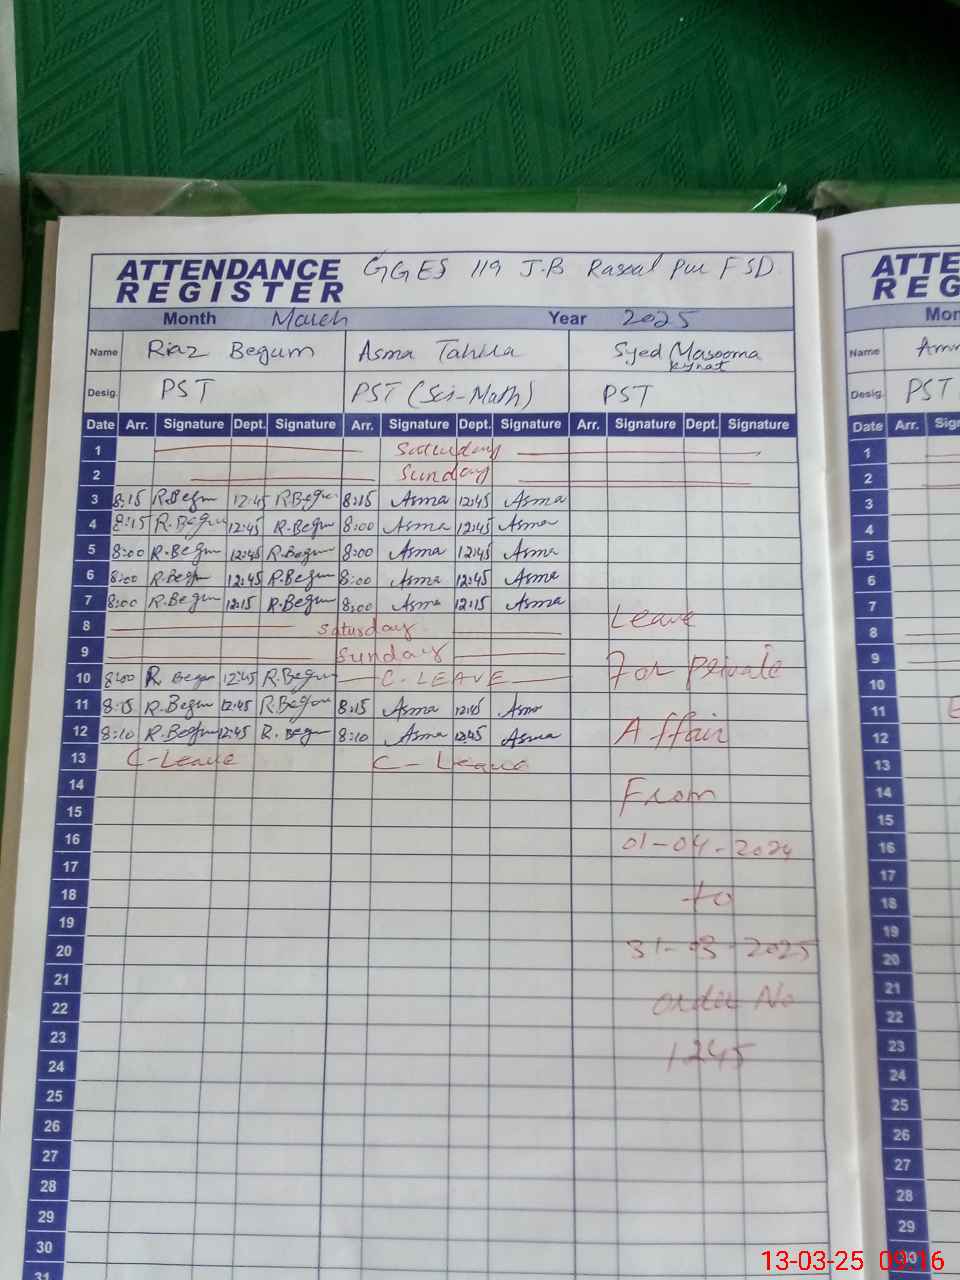 ATTENDANCE REGISTER GGES 119 J.B Rasool Pur FSD
Month March Year 2025
Name Riaz Begum Asma Tahira Syed Masooma
Desig. PST PST (Sci-Math) PST
Date Arr. Signature Dept. Signature Arr. Signature Dept. Signature Arr. Signature Dept. Signature
1 Saturday
2 Sunday
3 8:15 R.Begum 12:45 R.Begum 8:15 Asma 12:45 Asma
4 8:15 R.Begum 12:45 R.Begum 8:00 Asma 12:45 Asma
5 8:00 R.Begum 12:45 R.Begum 8:00 Asma 12:45 Asma
6 8:00 R.Begum 12:45 R.Begum 8:00 Asma 12:45 Asma
7 8:00 R.Begum 12:15 R.Begum 8:00 Asma 12:15 Asma Leave
8 Saturday
9 Sunday For Private
10 8:00 R. Begum 12:45 R.Begum C-LEAVE
11 8:15 R.Begum 12:45 R.Begum 8:15 Asma 12:45 Asma
12 8:10 R.Begum 12:45 R.Begum 8:10 Asma 12:45 Asma Affair
13 C-Leave C-Leave
14 From
15
16 01-04-2024
17
18 to
19
20 31-03-2025
21
22 order No
23
24 1245
25
26
27
28
29
30
31
ATTE
REG
Mon
Name
Desig. PST
Date Arr. Sig
1
2
3
4
5
6
7
8
9
10
11
12
13
14
15
16
17
18
19
20
21
22
23
24
25
26
27
28
29
30
13-03-25 09:16